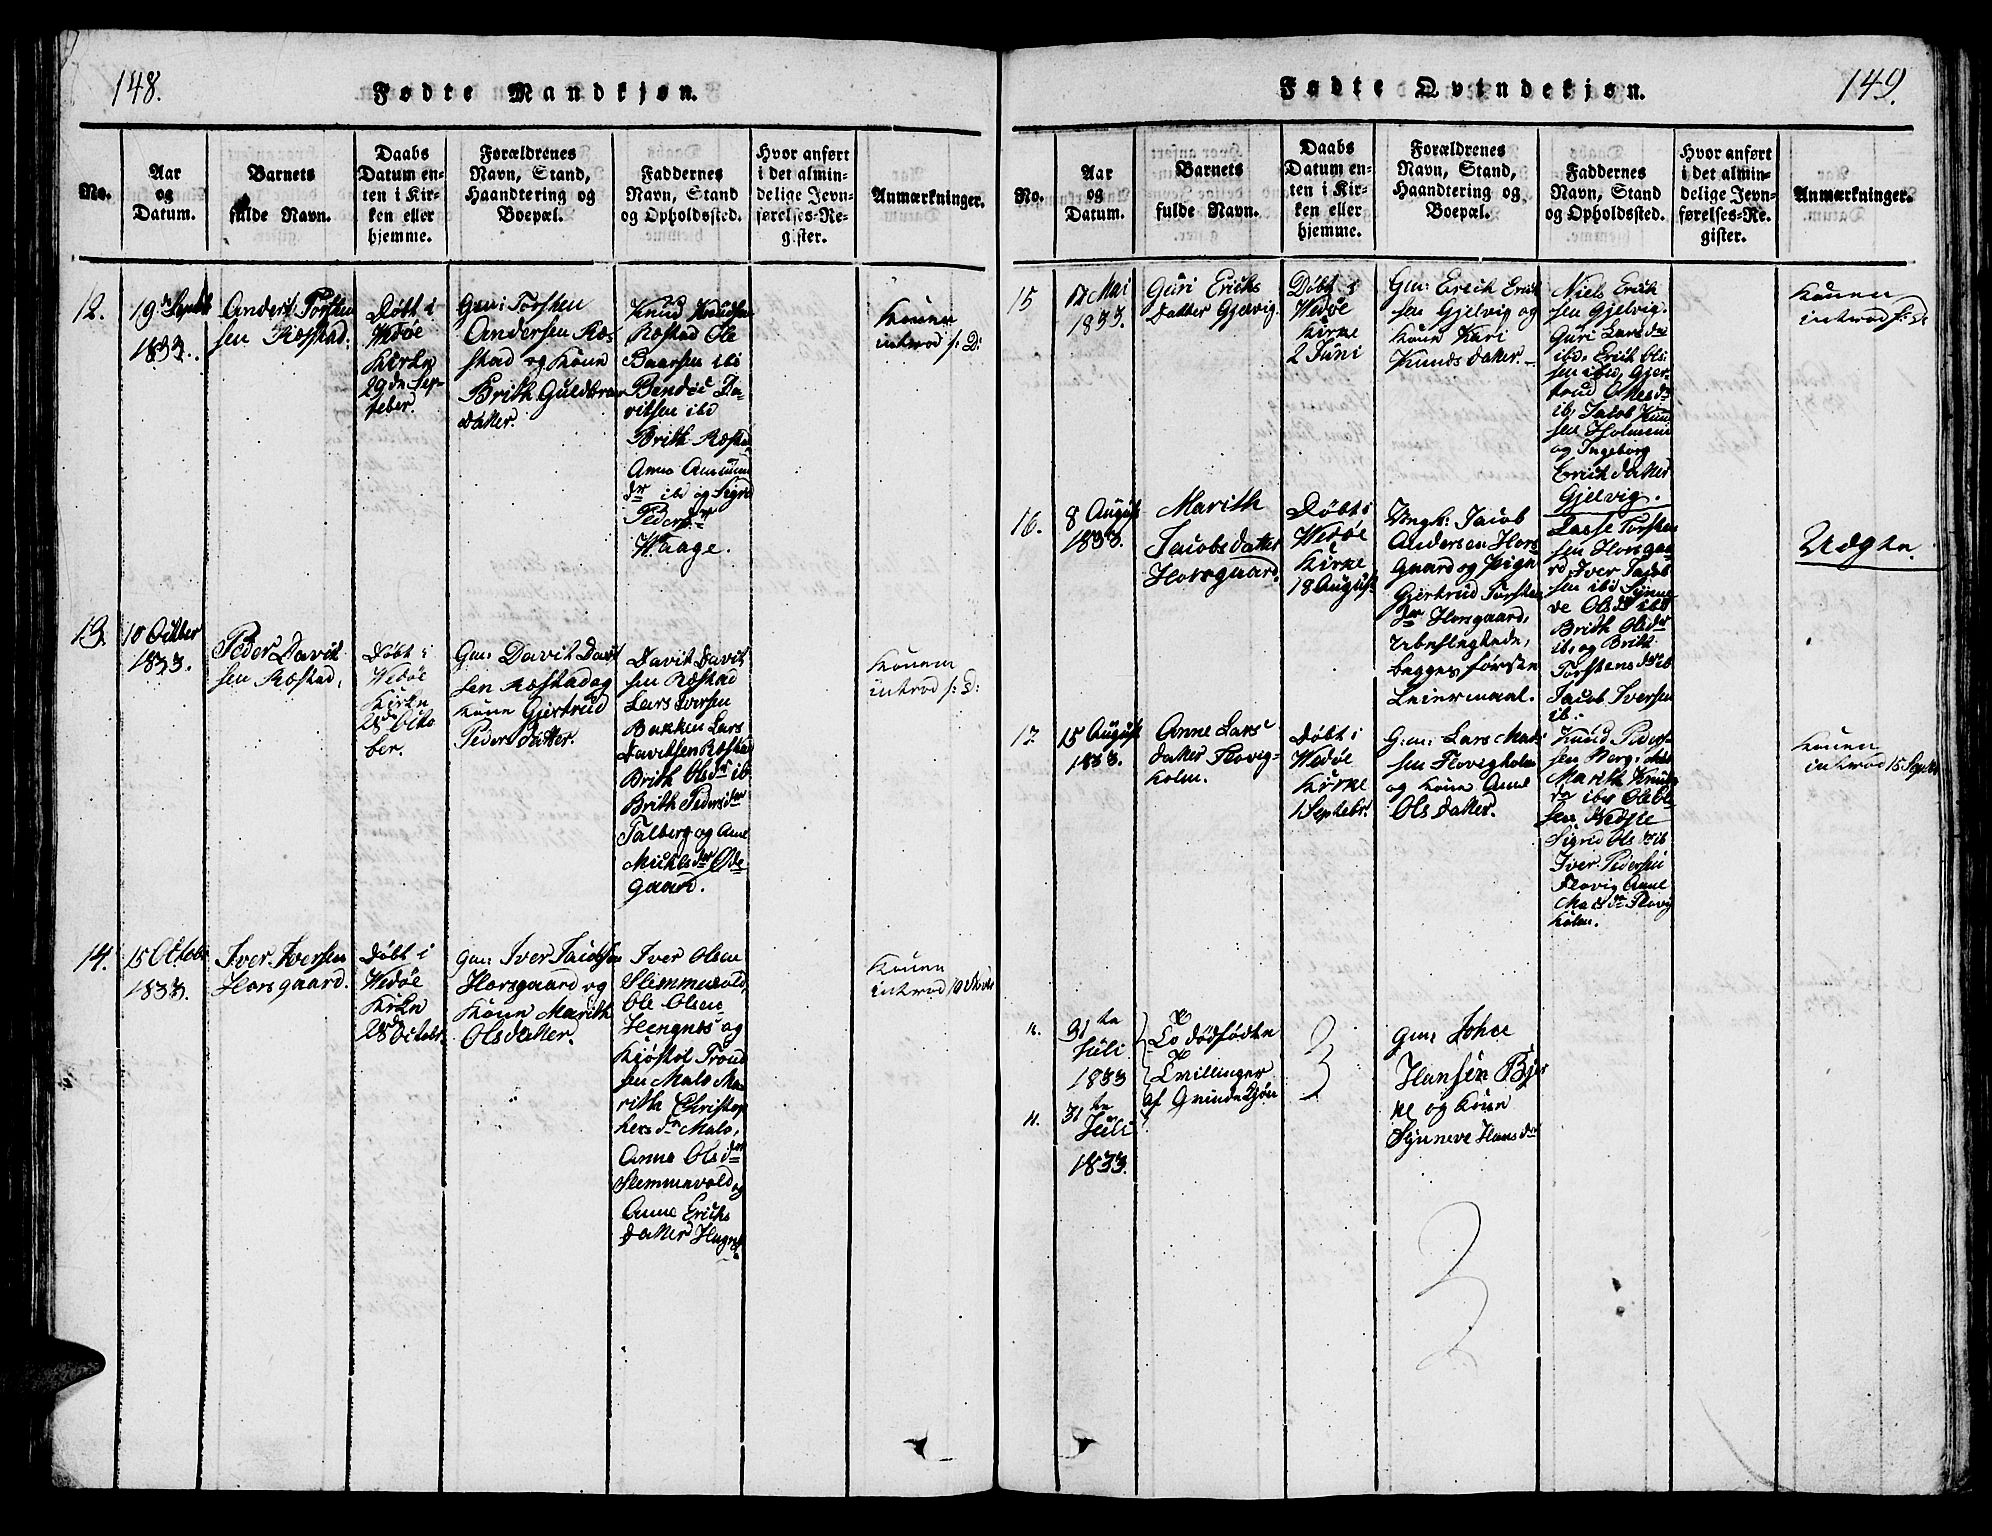 148.
Fødte Mandkjøn.
No.
Aar
og
Datum.
Barnets
fulde Navn.
Daabs
Datum en-
ten i Kir-
ken eller
hjemme.
Forældrenes
Navn, Stand,
Haandtering og
Boepæl.
Faddernes
Navn, Stand
og Opholdssted.
Hvor anført
i det almin-
delige Jevn-
førelses-Re-
gister.
Anmærkninger.
12.
1833.
Anders Torsten
sen Røstad.
Døbt i
Wedøe
Kirke
29de Sep-
teber.
Gm: Torsten
Andersen Røs-
stad og Kone
Brith Guldbran
datter.
Knud Knudsen
Røstad Ole
Baarsen ibd
Bendic Da-
vitsen ibd
Brith Røstad
Anne Amun
dr ibd og Sigrid
Pedersdr
Waage.
Konen
introd s: D:
13.
10 Octber
1833.
Peder Davit
sen Røstad,
Døbt i
Wedøe
Kirke
28de Octo
ber.
Gm: Davit Davit
sen Røstad og
Kone Gjertrud
Peders datter.
Davit Davit
sen Røstad
Lars Iversen
Bakken Lars
Davitsen Røstad
Brith Olsdr ib
Brith Pedersdr
Talberg og Ane
Mickelsdr Øde-
gaard.
Konen
introd s: D:
14.
15 Octobr
1833.
Iver Iversen
Horsgaard.
Døbt i
Wedøe
Kirke
28 Octobr.
Gm: Iver Jacobsen
Horsgaard og
Kone Marith
Olsdatter.
Iver Olsen
Slemmevold,
Ole Olsen
Hengnes og
Kiøstol Trond
sen Malo Ma-
rithe Christop
hersdr Malo,
Anne Olsdr
Slemmevold og
Anne Erichs
datter
Konen
introd
149.
Fødte Qvindekjøn.
No.
Aar
og
Datum.
Barnets
fulde Navn.
Daabs
Datum en-
ten i Kir-
ken eller
hjemme.
Forældrenes
Navn, Stand,
Haandtering og
Boepæl.
Faddernes
Navn, Stand
og Opholdssted.
Hvor anført
i det almin-
delige Jevn-
førelses-Re-
gister.
Anmærkninger.
15
17 Mai
1833.
Guri Erichs
datter Gjelvig.
Døbt i
Wedøe
Kirke
2 Juni
Gm: Erich Erich
sen Gjelvig og
Kone Kari
Knuds datter.
Niels Erich
sen Gjelvig.
Guri Larsdr
ibd. Erich Ols
sen ibd, Gjer-
trud
ib, Jacob Knud
sen Holmem
og Ingeborg
Erich datter
Gjelvig.
Konen
introd s: D:
16.
8 August
1833.
Marith
Jacobs datter
Horsgaard.
Døbt i
Wedøe
Kirke
18 August
Ungk: Jacob
Andersen Hors
gaard og Pige
Gjertrud Torsten
dr Horsgaard,
ubeslegtede,
begges første
Leiermaal.
Lasse Torsten
sen Horsgaa-
rd Iver Jacob
sen ibd Synne
ve Olsdr ibd
Brith Olsdr
ib, og Brith
Torstens dr ib
Jacob Iversen
ib.
Uægte.
17
15 August
1833.
Anne Lars
datter Flovig-
holm.
Døbt i
Wedøe
Kirke
1 Septebr.
Gm: Lars Mads
sen Flovigholm
og Kone Anne
Ols datter.
Knud Peder-
sen
Marith Knuds
dr ibd Ole Ol-
sen
Sigrid Ols dr ib
Iver Pedersen
Flovig Anne
Madsdr Flovig
holm.
Konen
introd 15 Septbr
11.
31te
Juli
1833
To dødfødte
Tvillinger
af Qvindekjøn
Gm: Johan
Hansen Bjer
ke og Kone
Synneve Hansdr
11.
31te
Juli
1833.